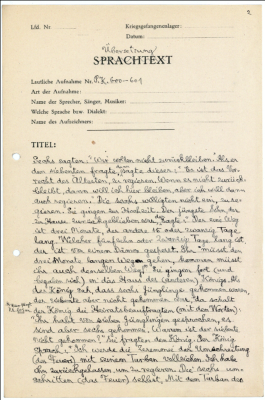 2
Lfd. Nr.
Kriegsgefangenenlager:
Datum:
Übersetzung
SPRACHTEXT
Lautliche Aufnahme Nr. P.K. 600-601
Art der Aufnahme:
Name der Sprecher, Sänger, Musiker:
Welche Sprache bzw. Dialekt:
Name des Aufzeichners:
TITEL:
Sechs sagten: "Wir wollen nicht zurückbleiben." Als er
den siebenten fragte, sagte dieser: "Es ist das Vor-
recht des Ältesten, zu regieren. Wenn er nicht zurück-
bleibt, dann will ich hier bleiben, aber ich will dann
auch regieren." Die sechs willigten nicht ein, zu re-
gieren. Sie gingen zur Hochzeit. Der jüngste Sohn, der
im Hause zurückgeblieben war, sagte: "Der eine Weg
ist drei Monate, der andere 15 oder zwanzig Tage
lang. Welcher fünfzehn oder zwanzig Tage lang ist,
der ist von einem Dämon gesperrt. Ihr müsst den
drei Monate langen Weg gehen, kommen müsst
ihr auch denselben Weg." Sie gingen fort (und
begaben sich) in das Haus des (anderen) Königs. Als
der König sah, dass sechs Jünglinge gekommen waren,
der siebente aber nicht gekommen war, da schalt
der König die Heiratsbeauftragten (mit den Worten):
"Ihr habt von sieben Jünglingen gesprochen, es
sind aber sechs gekommen. Warum ist der siebente
nicht gekommen?" Sie fragten den König. Der König
sprach: "Ich werde die Zeremonie der Umwandlung
(des Feuers) mit seinem Turban vollziehen. Ich habe
ihn zurückgelassen, um zu regieren. Die sechs um-
schritten (das Feuer) selbst. Mit dem Turban des